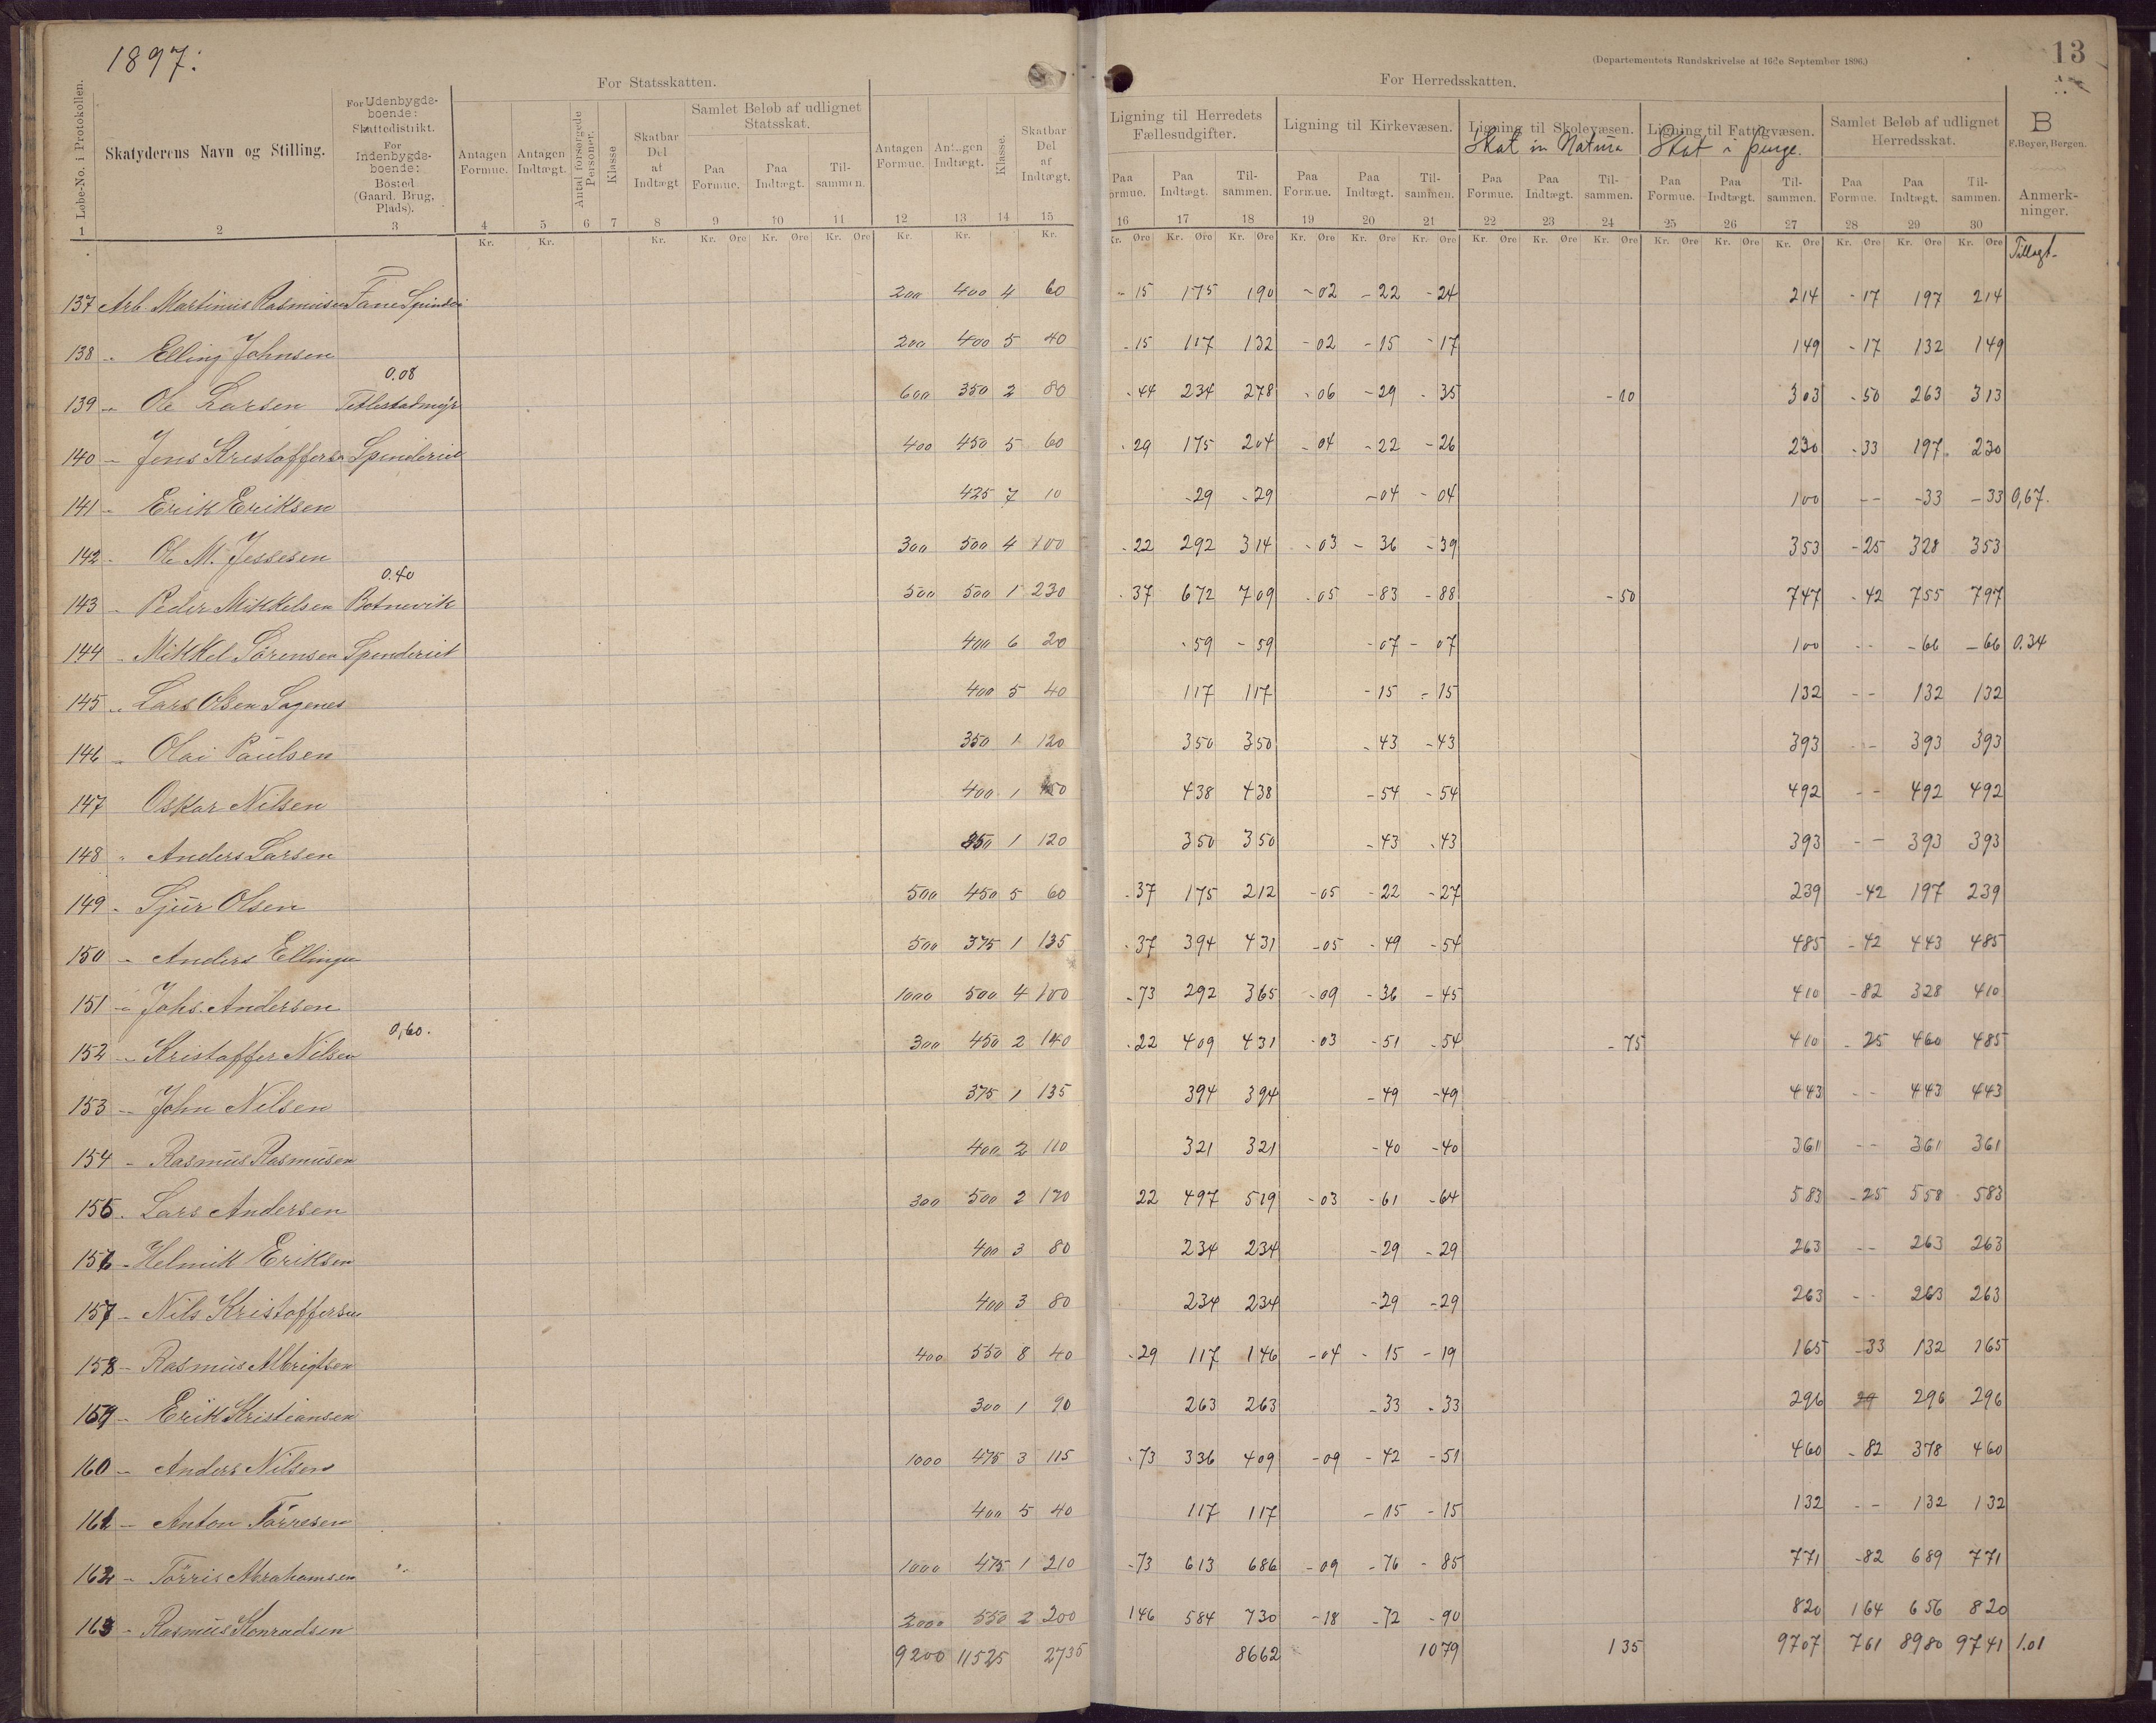 1897:
13
(Departementets Rundskrivelse af 16de September 1896.)
For Statsskatten.
For Herredsskatten.
Løbe-No. i Protokollen.
Skatyderens Navn og Stilling.
For Udenbygdsboende: Skattedistrikt. For Indenbygdsboende: Bosted (Gaard, Brug, Plads).
Antagen Formue.
Antagen Indtægt.
Antal forsørgede Personer.
Klasse
Skatbar Del af Indtægt
Samlet Beløb af udlignet Statsskat.
Paa Formue. Paa Indtægt. Tilsammen.
Antagen Formue.
Antagen Indtægt.
Klasse.
Skatbar Del af Indtægt.
Ligning til Herredets Fællesudgifter.
Ligning til Kirkevæsen.
Ligning til Skolevæsen. Skat in Natura
Ligning til Fattigvæsen. Skat i penge.
Samlet Beløb af udlignet Herredsskat.
B
F. Beyer, Bergen.
Anmerkninger.
Paa Formue. Paa Indtægt. Tilsammen. Paa Formue. Paa Indtægt. Tilsammen. Paa Formue. Paa Indtægt. Tilsammen. Paa Formue. Paa Indtægt. Tilsammen. Paa Formue. Paa Indtægt. Tilsammen.
1 2 3 4 5 6 7 8 9 10 11 12 13 14 15 16 17 18 19 20 21 22 23 24 25 26 27 28 29 30
Kr. Kr. Kr. Kr. Øre Kr. Øre Kr. Øre Kr. Kr. Kr. Kr. Øre Kr. Øre Kr. Øre Kr. Øre Kr. Øre Kr. Øre Kr. Øre Kr. Øre Kr. Øre Kr. Øre Kr. Øre Kr. Øre Kr. Øre Kr. Øre Kr. Øre
Tillagt.
137 Arb. Martinus Rasmusen Fane Spinderi 200 400 4 60 -15 175 190 -02 -22 -24 214 -17 197 214
138 " Elling Johnsen 200 400 5 40 -15 117 132 -02 -15 -17 149 -17 132 149
0.08
139 " Ole Larsen Titlestadmyr 600 350 2 80 -44 234 278 -06 -29 -35 -10 303 -50 263 313
140 - Jens Kristoffersen Spinderiet 400 450 5 60 -29 175 204 -04 -22 -26 230 -33 197 230
141 - Erik Eriksen 425 7 10 -29 -29 -04 -04 100 -- -33 -33 0,67.
142 - Ole M. Jessesen 300 500 4 100 -22 292 314 -03 -36 -39 353 -25 328 353
0.40
143 - Peder Mikkelsen Botnevik 500 500 1 230 -37 672 709 -05 -83 -88 -50 747 -42 755 797
144 - Mikkel Sørensen Spinderiet 400 6 20 -59 -59 -07 -07 100 -- -66 -66 0.34
145 " Lars Olsen Sagenes 400 5 40 117 117 -15 -15 132 -- 132 132
146 - Olai Paulsen 350 1 120 350 350 -43 -43 393 -- 393 393
147 Oskar Nilsen 400 1 150 438 438 -54 -54 492 -- 492 492
148 " Anders Larsen 350 1 120 350 350 -43 -43 393 -- 393 393
149 - Sjur Olsen 500 450 5 60 -37 175 212 -05 -22 -27 239 -42 197 239
150 - Anders Ellingsen 500 375 1 135 -37 394 431 -05 -49 -54 485 -42 443 485
151 - Johs. Andersen 1000 500 4 100 -73 292 365 -09 -36 -45 410 -82 328 410
0,60.
152 - Kristoffer Nilsen 300 450 2 140 -22 409 431 -03 -51 -54 -75 410 -25 460 485
153 - John Nilsen 375 1 135 394 394 -49 -49 443 -- 443 443
154 - Rasmus Rasmusen 400 2 110 321 321 -40 -40 361 -- 361 361
155 - Lars Andersen 300 500 2 170 22 497 519 -03 -61 -64 583 -25 558 583
156 - Helmik Eriksen 400 3 80 234 234 -29 -29 263 -- 263 263
157 - Nils Kristoffersen 400 3 80 234 234 -29 -29 263 -- 263 263
158 - Rasmus Albrigtsen 400 550 8 40 -29 117 146 -04 -15 -19 165 -33 132 165
159 - Erik Kristiansen 300 1 90 263 263 -33 -33 296 29 296 296
160 - Anders Nilsen 1000 475 3 115 -73 336 409 -09 -42 -51 460 -82 378 460
161 - Anton Tørresen 400 5 40 117 117 -15 -15 132 -- 132 132
162 - Tørris Abrahamsen 1000 475 1 210 -73 613 686 -09 -76 -85 771 -82 689 771
163 - Rasmus Konradsen 2000 550 2 200 146 584 730 -18 -72 -90 820 164 656 820
9200 11525 2735 8662 1079 135 9707 761 8980 9741 1.01